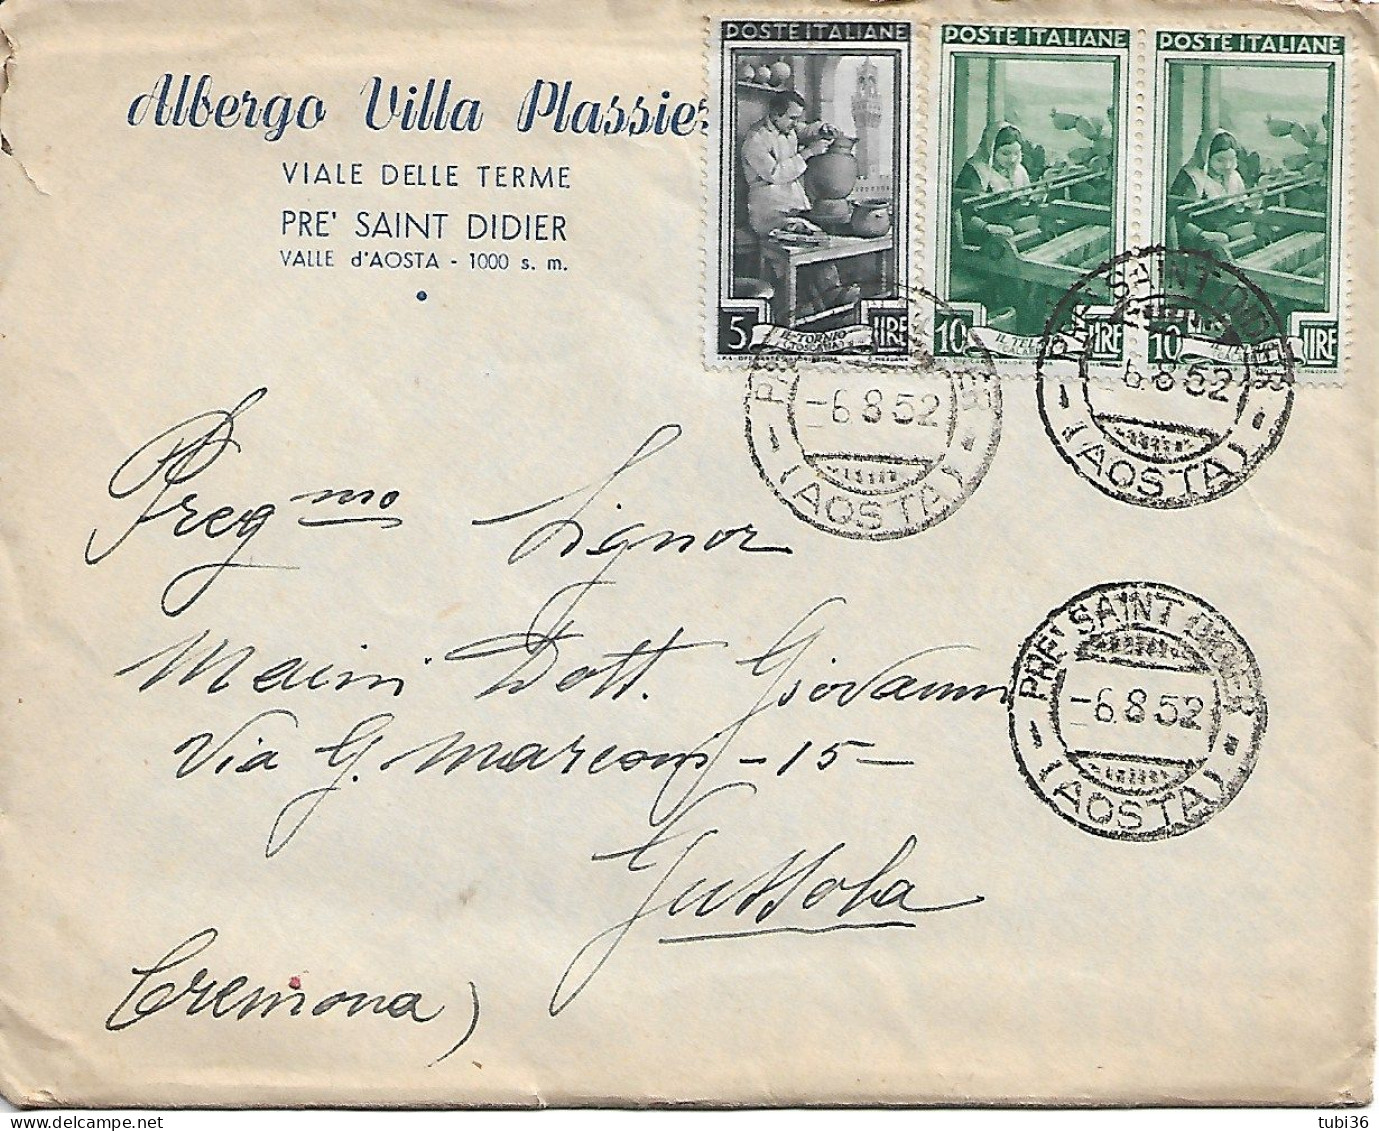 Albergo Villa Plassier
VIALE DELLE TERME
PRE' SAINT DIDIER
VALLE d'AOSTA - 1000 s. m.
POSTE ITALIANE
5 LIRE
IL TORNIO
POSTE ITALIANE
10 LIRE
POSTE ITALIANE
10 LIRE
-6.8.52
(AOSTA)
PRE' SAINT DIDIER
-6.8.52
(AOSTA)
PRE' SAINT DIDIER
-6.8.52
(AOSTA)
Pregmo Signor
Maini Dott. Giovanni
Via G. Marconi - 15 -
Gussola
Cremona)
tubi36